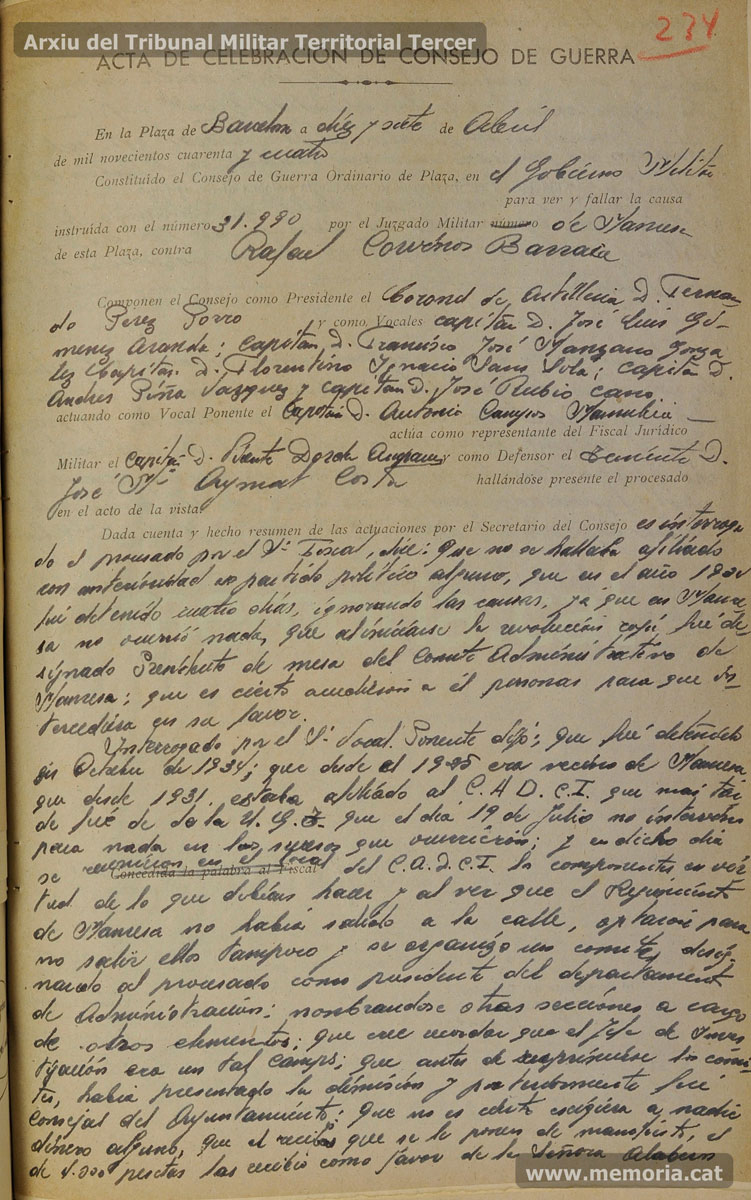 Arxiu del Tribunal Militar Territorial Tercer
234
ACTA DE CELEBRACION DE CONSEJO DE GUERRA
En la Plaza de Barcelona a diez y siete de Abril
de mil novecientos cuarenta y cuatro
Constituído el Consejo de Guerra Ordinario de Plaza, en el Gobierno Militar
para ver y fallar la causa
instruída con el número 31.990 por el Juzgado Militar número de Manresa
de esta Plaza, contra Rafael Corvinos
Componen el Consejo como Presidente el Coronel de Artilleria D. Fernan
do Perez Porro y como Vocales capitán D. José Luis Gi-
menez Aranda; capitan, D. Francisco José Manzano Gonza
lez Capitán. D. Florentino Ignacio Sans Sola; capitan D.
Andres Piña Vazquez y capitan D. José Rubio Cano.
actuando como Vocal Ponente el Capitán D. Antonio Campos
actúa como representante del Fiscal Jurídico
Militar el Capitán D. y como Defensor el Teniente D.
José Mª Aymat Costa hallándose presente el procesado
en el acto de la vista
Dada cuenta y hecho resumen de las actuaciones por el Secretario del Consejo es interroga
do el procesado por el Sr. Fiscal, dice: Que no se hallaba afiliado
con anterioridad a partido político alguno, que en el año 1934
fué detenido cuatro dias, ignorando las causas, ya que en Manre
sa no ocurrió nada, que al iniciarse la revolución roja, fué de
signado Presidente de mesa del Comite Administrativo de
Manresa; que es cierto acudieron a él personas para que in
tercediera en su favor.
Interrogado por el Sr. Vocal Ponente dijo; que fué detenido
en Octubre de 1934; que desde el 1925 era vecino de Manresa
que desde 1931, estaba afiliado al C.A.D.C.I. que mas tar
de fué de la U.G.T. que el dia 19 de Julio no intervino
para nada en los sucesos que ocurrieron; y en dicho dia
se reunieron en el local del C.A.D.C.I. los componentes en vir
Concedida la palabra al Fiscal
tud de lo que debian hacer y al ver que el Regimiento
de Manresa no habia salido a la calle, optaron para
no salir ellos tampoco y se organizó un comite, desig
nando al procesado como presidente del departamento
de Administración; nombrandose otras secciones a cargo
de otros elementos; que cree recordar que el Jefe de Inves
tigación era un tal Camps; que antes de suprimirse los comi-
tes, habia presentado la dimisión y posteriormente fué
Concejal del Ayuntamiento; Que no es cierto exigiera a nadie
dinero alguno, que el recibo que se le pone de manifiesto, el
de 4.000 pesetas las recibio como favor de la Señora
www.memoria.cat